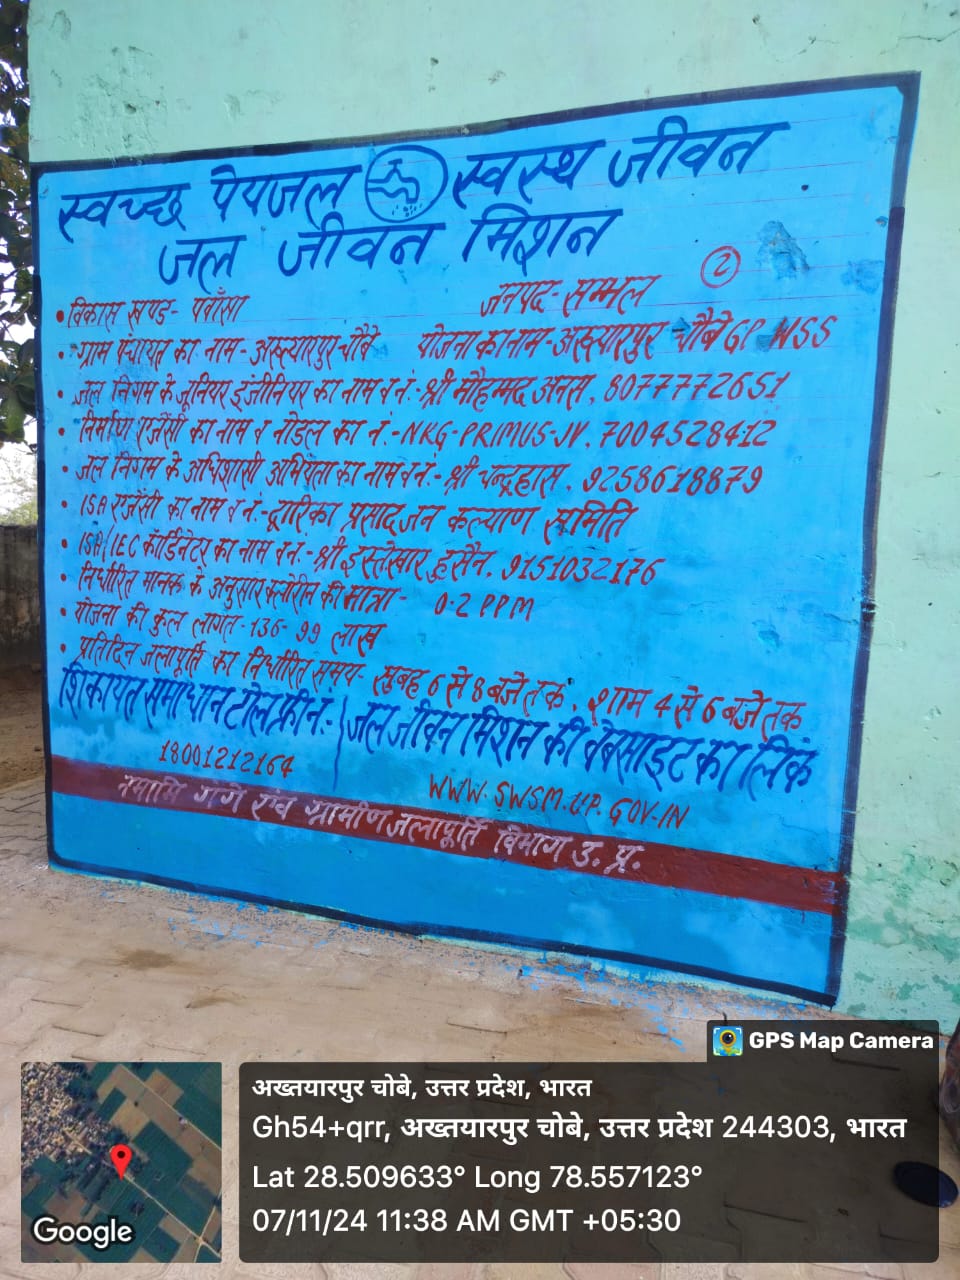 स्वच्छ पेयजल स्वस्थ जीवन
जल जीवन मिशन
2
• विकास खण्ड- पवाँसा जनपद- सम्भल
• ग्राम पंचायत का नाम- अख्त्यारपुर चौबे योजना का नाम- अख्त्यारपुर चौबे GP WSS
• जल निगम के जूनियर इंजीनियर का नाम व नं.- श्री मौहम्मद अनस, 8077772651
• निर्माण एजेंसी का नाम व नोडल का नं.- NKG-PRIMUS-JV, 7004528412
• जल निगम के अधिशासी अभियंता का नाम व नं.- श्री चन्द्रहास, 9258618879
• ISA एजेंसी का नाम व नं.- द्वारिका प्रसाद जन कल्याण समिति
• ISA/IEC कॉर्डिनेटर का नाम व नं.- श्री इस्तेखार हुसैन, 9151032176
• निर्धारित मानक के अनुसार क्लोरीन की मात्रा- 0.2 PPM
• योजना की कुल लागत- 136-99 लाख
• प्रतिदिन जलापूर्ति का निर्धारित समय- सुबह 6 से 8 बजे तक, शाम 4 से 6 बजे तक
शिकायत समाधान टोल फ्री नं.- जल जीवन मिशन की वेबसाइट का लिंक
18001212164 WWW.SWSM.UP.GOV.IN
नमामि गंगे एंव ग्रामीण जलापूर्ति विभाग उ. प्र.
GPS Map Camera
अख्तयारपुर चोबे, उत्तर प्रदेश, भारत
Gh54+qrr, अख्तयारपुर चोबे, उत्तर प्रदेश 244303, भारत
Lat 28.509633° Long 78.557123°
07/11/24 11:38 AM GMT +05:30
Google